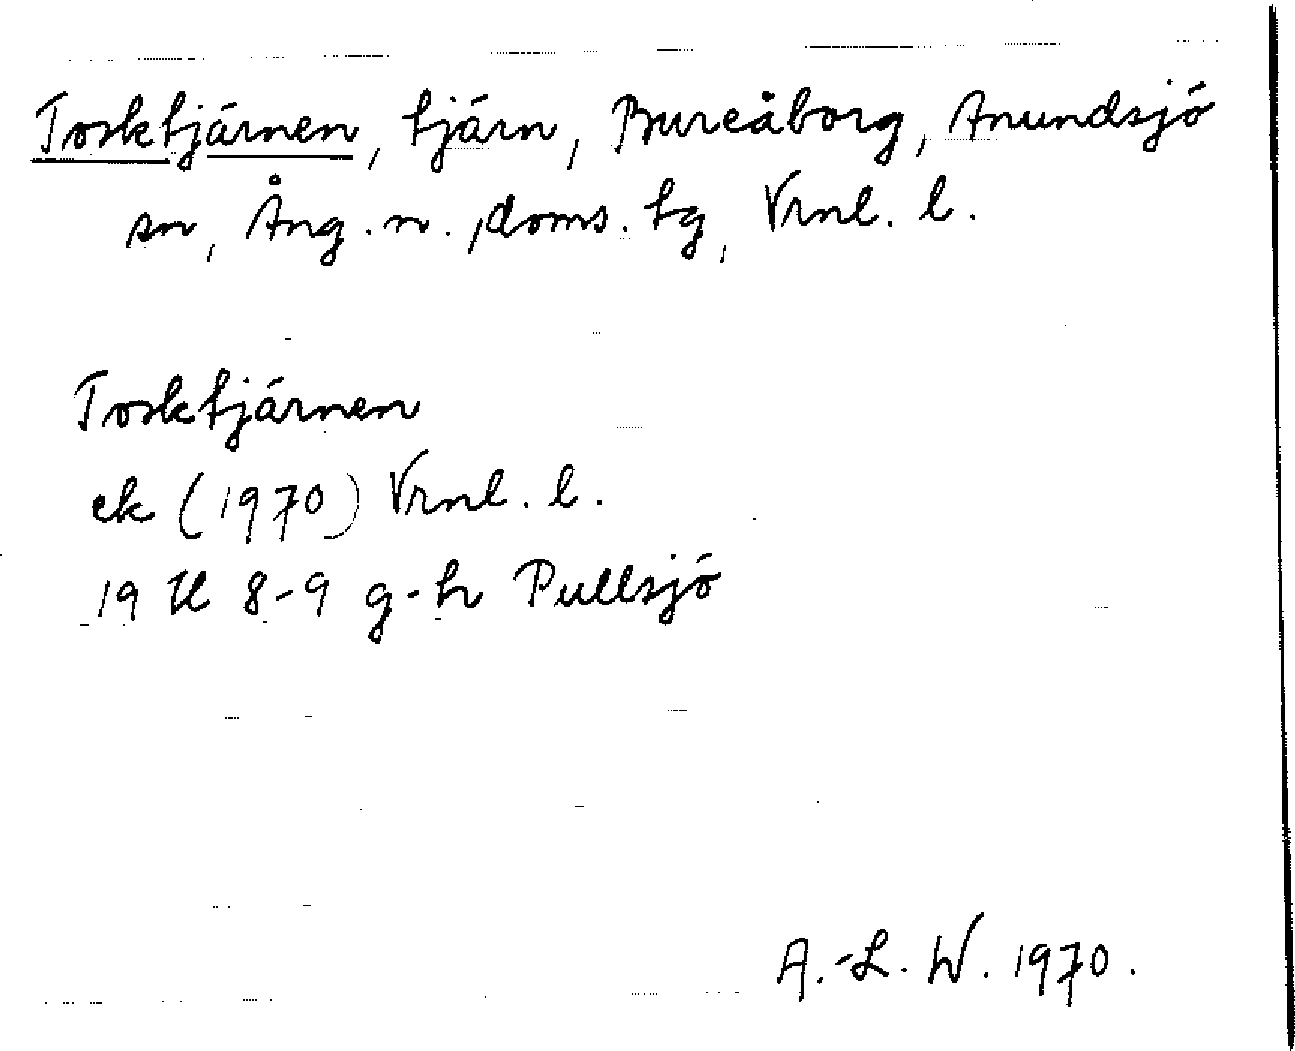 Tosktjärnen, tjärn, Bureåborg, Anundsjö
sn, Ång. n., doms. tg, Vrnl. l.
Tosktjärnen
ek (1970) Vrnl. l.
19 H 8-9 g-h Pullsjö
A.-L. W. 1970.